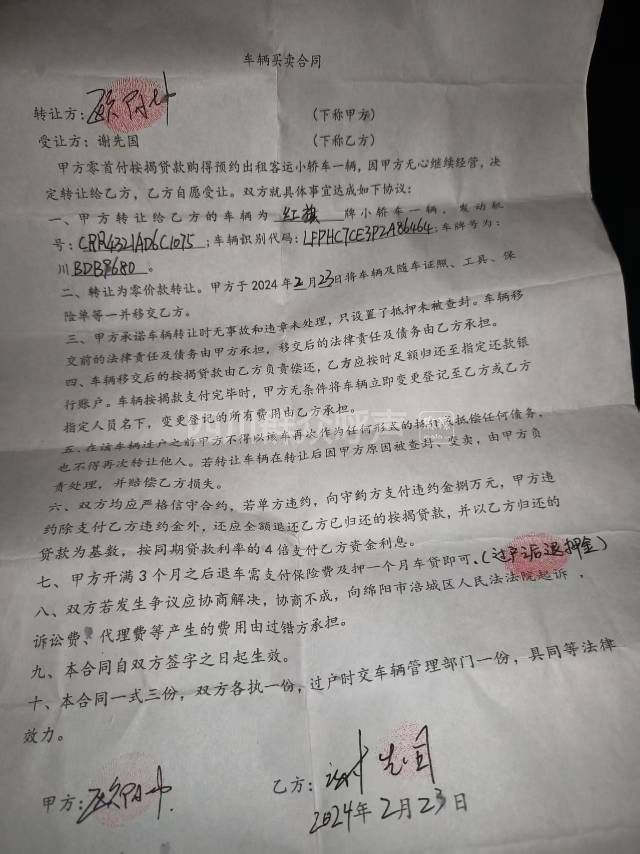 车辆买卖合同
转让方: （下称甲方）
受让方：谢先国 （下称乙方）
甲方零首付按揭贷款购得预约出租客运小轿车一辆，因甲方无心继续经营，决
定转让给乙方，乙方自愿受让。双方就具体事宜达成如下协议：
一、甲方转让给乙方的车辆为 红旗 牌小轿车一辆，发动机
号：CRR4321AD6C1075；车辆识别代码：LFPHC7CE3P2A86464；车牌号为：
川BDB9680。
二、转让为零价款转让。甲方于2024年2月23日将车辆及随车证照、工具、保
险单等一并移交乙方。
三、甲方承诺车辆转让时无事故和违章未处理，只设置了抵押未被查封。车辆移
交前的法律责任及债务由甲方承担，移交后的法律责任及债务由乙方承担。
四、车辆移交后的按揭贷款由乙方负责偿还，乙方应按时足额归还至指定还款银
行账户。车辆按揭款支付完毕时，甲方无条件将车辆立即变更登记至乙方或乙方
指定人员名下，变更登记的所有费用由乙方承担。
五、在该车辆过户之前甲方不得以该车再次作为任何形式的担保或抵偿任何债务，
也不得再次转让他人。若转让车辆在转让后因甲方原因被查封、变卖，由甲方负
责处理，并赔偿乙方损失。
六、双方均应严格信守合约，若单方违约，向守约方支付违约金捌万元，甲方违
约除支付乙方违约金外，还应全额退还乙方已归还的按揭贷款，并以乙方归还的
贷款为基数，按同期贷款利率的4倍支付乙方资金利息。
七、甲方开满3个月之后退车需支付保险费及押一个月车贷即可。(过户后退押金)
八、双方若发生争议应协商解决，协商不成，向绵阳市涪城区人民法法院起诉，
诉讼费、代理费等产生的费用由过错方承担。
九、本合同自双方签字之日起生效。
十、本合同一式三份，双方各执一份，过户时交车辆管理部门一份，具同等法律
效力。
甲方： 乙方：谢先国
2024年2月23日